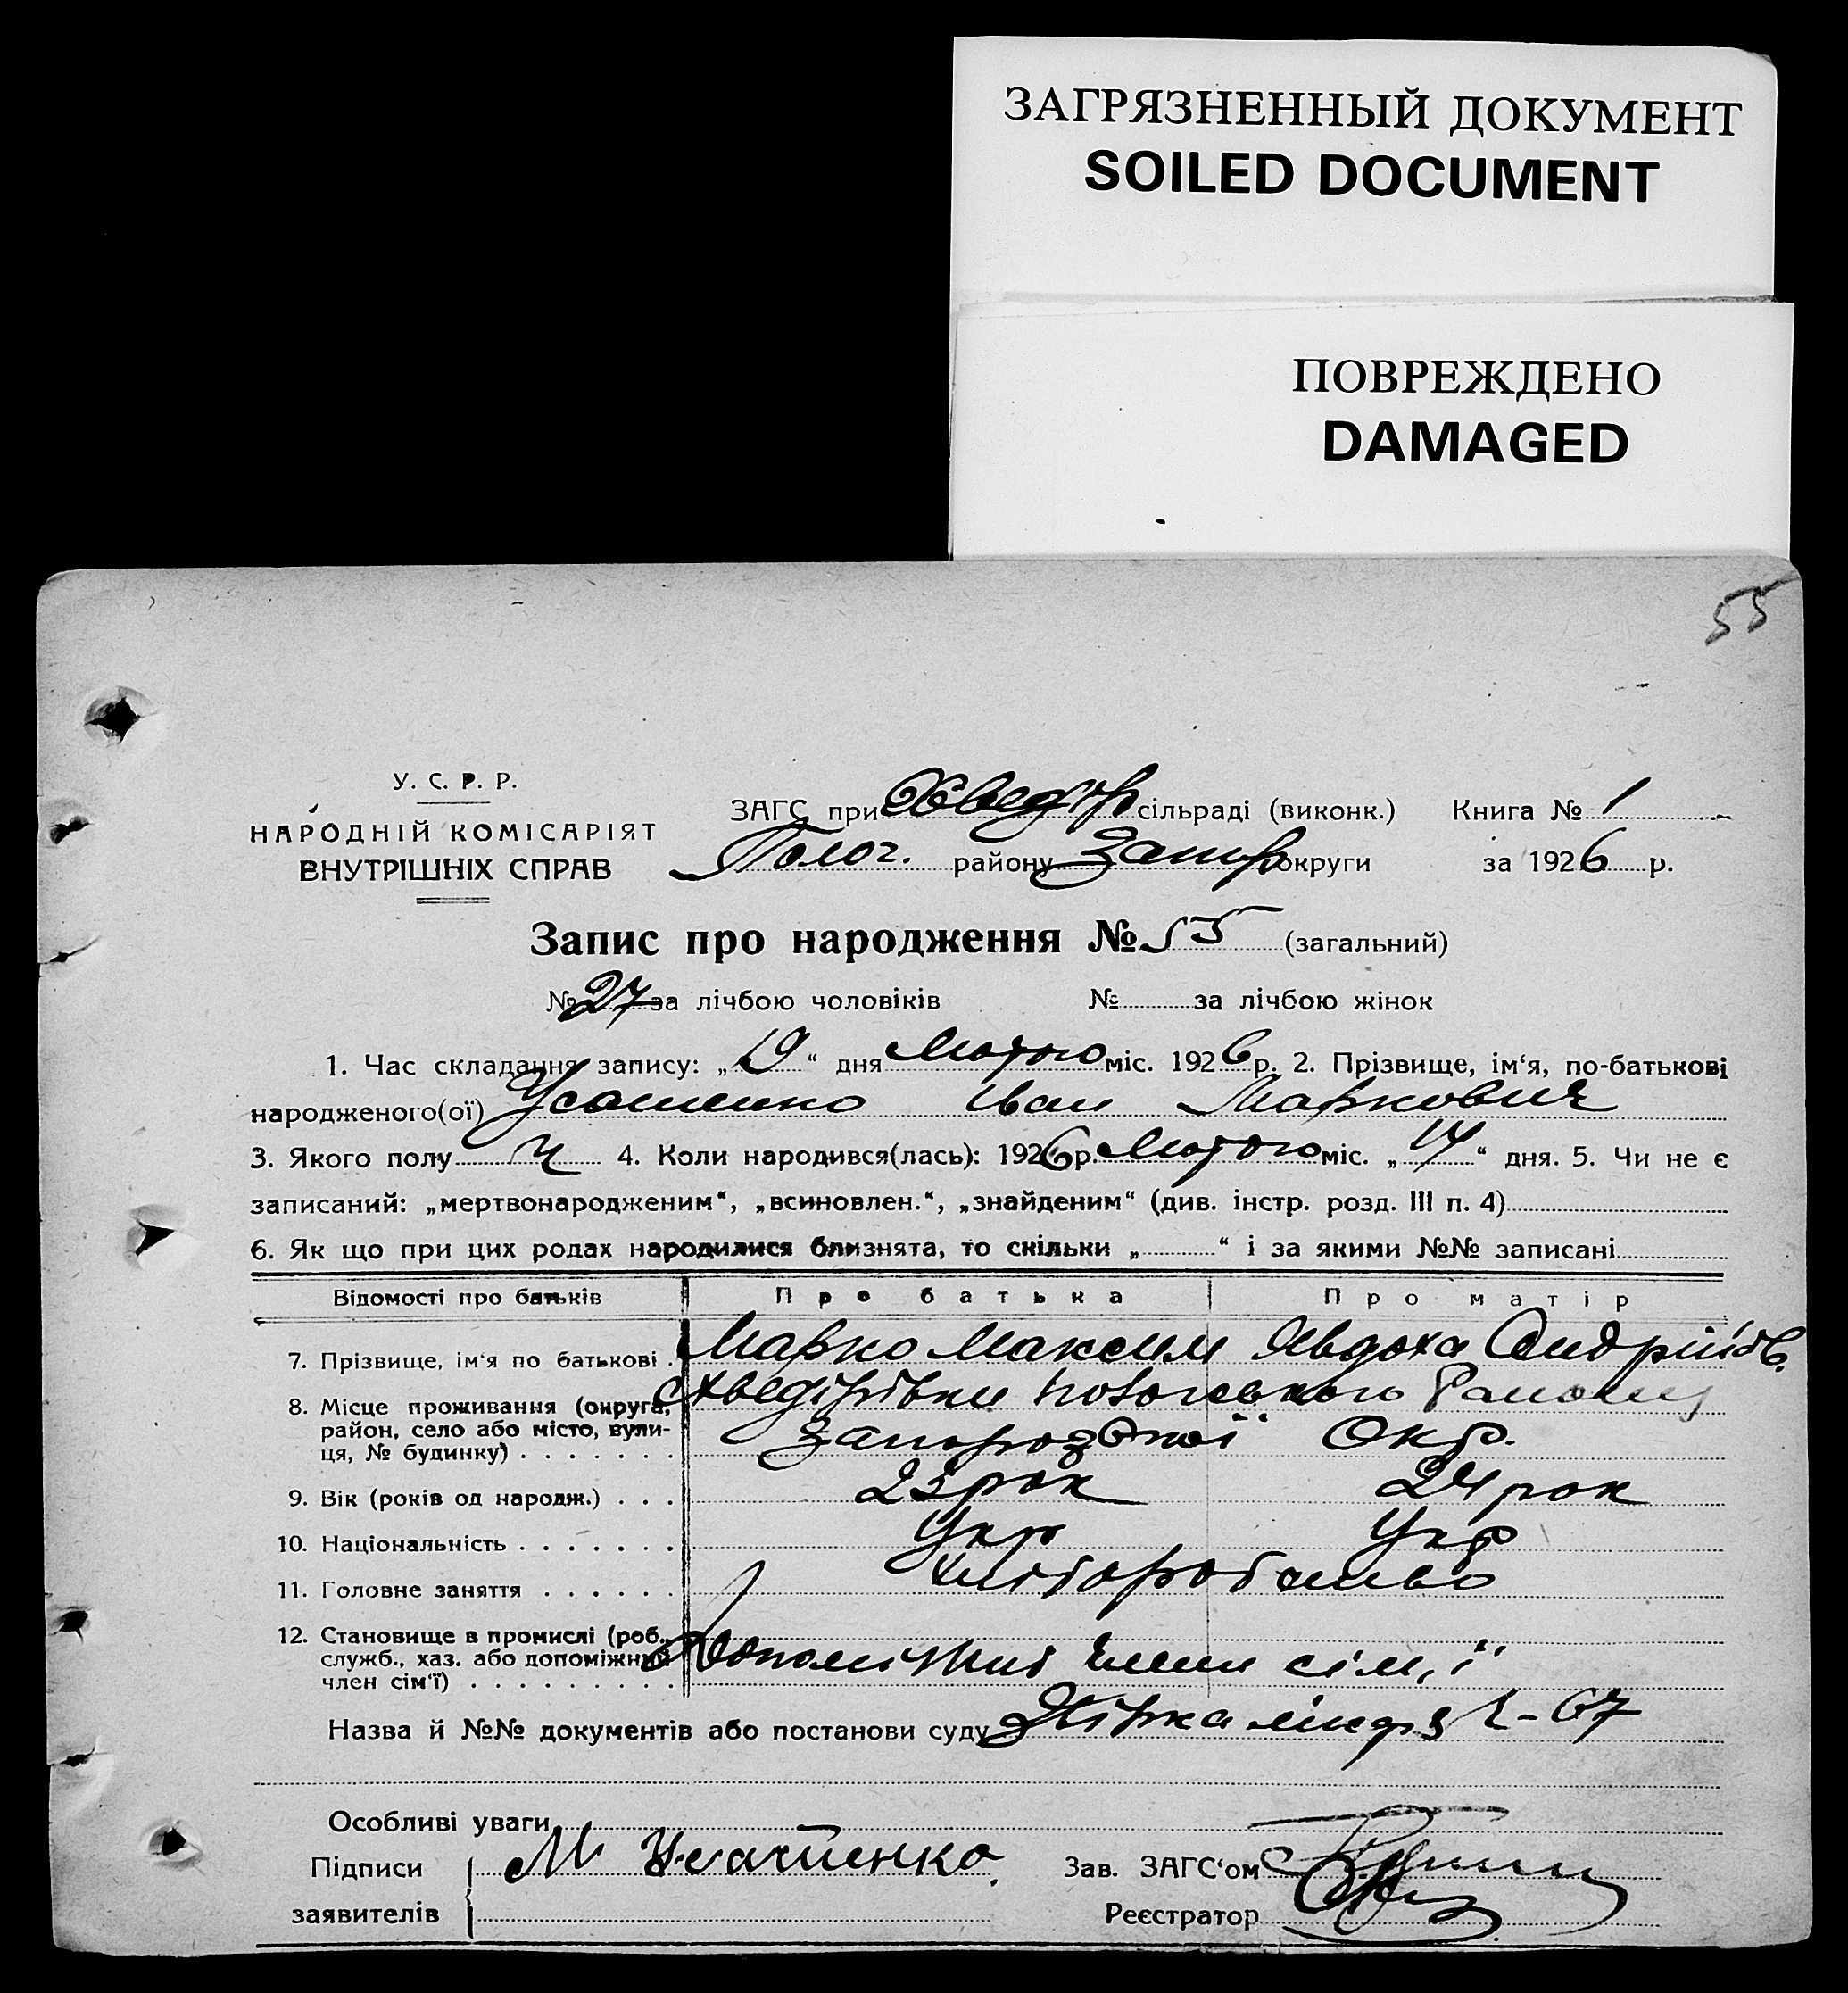 ЗАГРЯЗНЕННЫЙ ДОКУМЕНТ
SOILED DOCUMENT
ПОВРЕЖДЕНО
DAMAGED
55
У. С. Р. Р.
НАРОДНІЙ КОМІСАРІЯТ
ВНУТРІШНІХ СПРАВ
ЗАГС при Хведір сільраді (виконк.) Книга № 1
Полог. району Запор округи за 1926 р.
Запис про народження № 55 (загальний)
№ 27 за лічбою чоловіків № за лічбою жінок
1. Час складання запису: „19“ дня Лютого міс. 1926 р. 2. Прізвище, ім‘я, по-батькові
народженого(ої) Усатенко Іван Маркович
3. Якого полу ч 4. Коли народився(лась): 1926 р. Лютого міс. „14“ дня. 5. Чи не є
записаний: „мертвонародженим“, „всиновлен.“, „знайденим“ (див. інстр. розд. III п. 4)
6. Як що при цих родах народилися близнята, то скільки „ “ і за якими №№ записані
Відомості про батьків Про батька Про матір
7. Прізвище, ім‘я по батькові Марко Максим Явдоха Андріїв.
8. Місце проживання (округа, с Хведірівки Пологського Району
район, село або місто, вули- Запорозької Окр.
ця, № будинку)
9. Вік (років од народж.) 23 рок 24 рок
10. Національність Укр Укр
11. Головне заняття Хліборобство
12. Становище в промислі (роб.,
служб., хаз. або допоміжний Допоміжні член сім,ї
член сім‘ї)
Назва й №№ документів або постанови суду 67
Особливі уваги
Підписи М Усатенко Зав. ЗАГС‘ом
заявителів Реєстратор